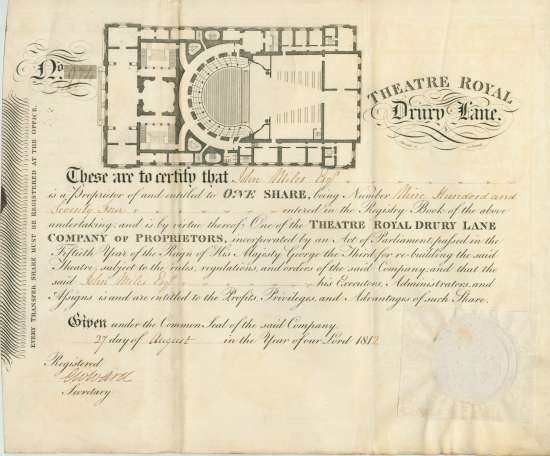 No.
THEATRE ROYAL
Drury Lane.
EVERY TRANSFER SHARE MUST BE REGISTERED AT THE OFFICE.
These are to certify that John Miles Esqr
is a Proprietor of and entitled to ONE SHARE, being Number Nine Hundred and
Seventy entered in the Registry Book of the above
undertaking; and is by virtue thereof, One of the THEATRE ROYAL DRURY LANE
COMPANY OF PROPRIETORS, incorporated by an Act of Parliament passed in the
Fiftieth Year of the Reign of His Majesty George the Third, for re-building the said
Theatre, subject to the rules, regulations, and orders of the said Company; and that the
said John Miles Esqr his Executors, Administrators, and
Assigns is and are entitled to the Profits, Privileges, and Advantages of such Share.
Given under the Common Seal of the said Company,
27 day of August in the Year of our Lord 1812.
Registered
Secretary